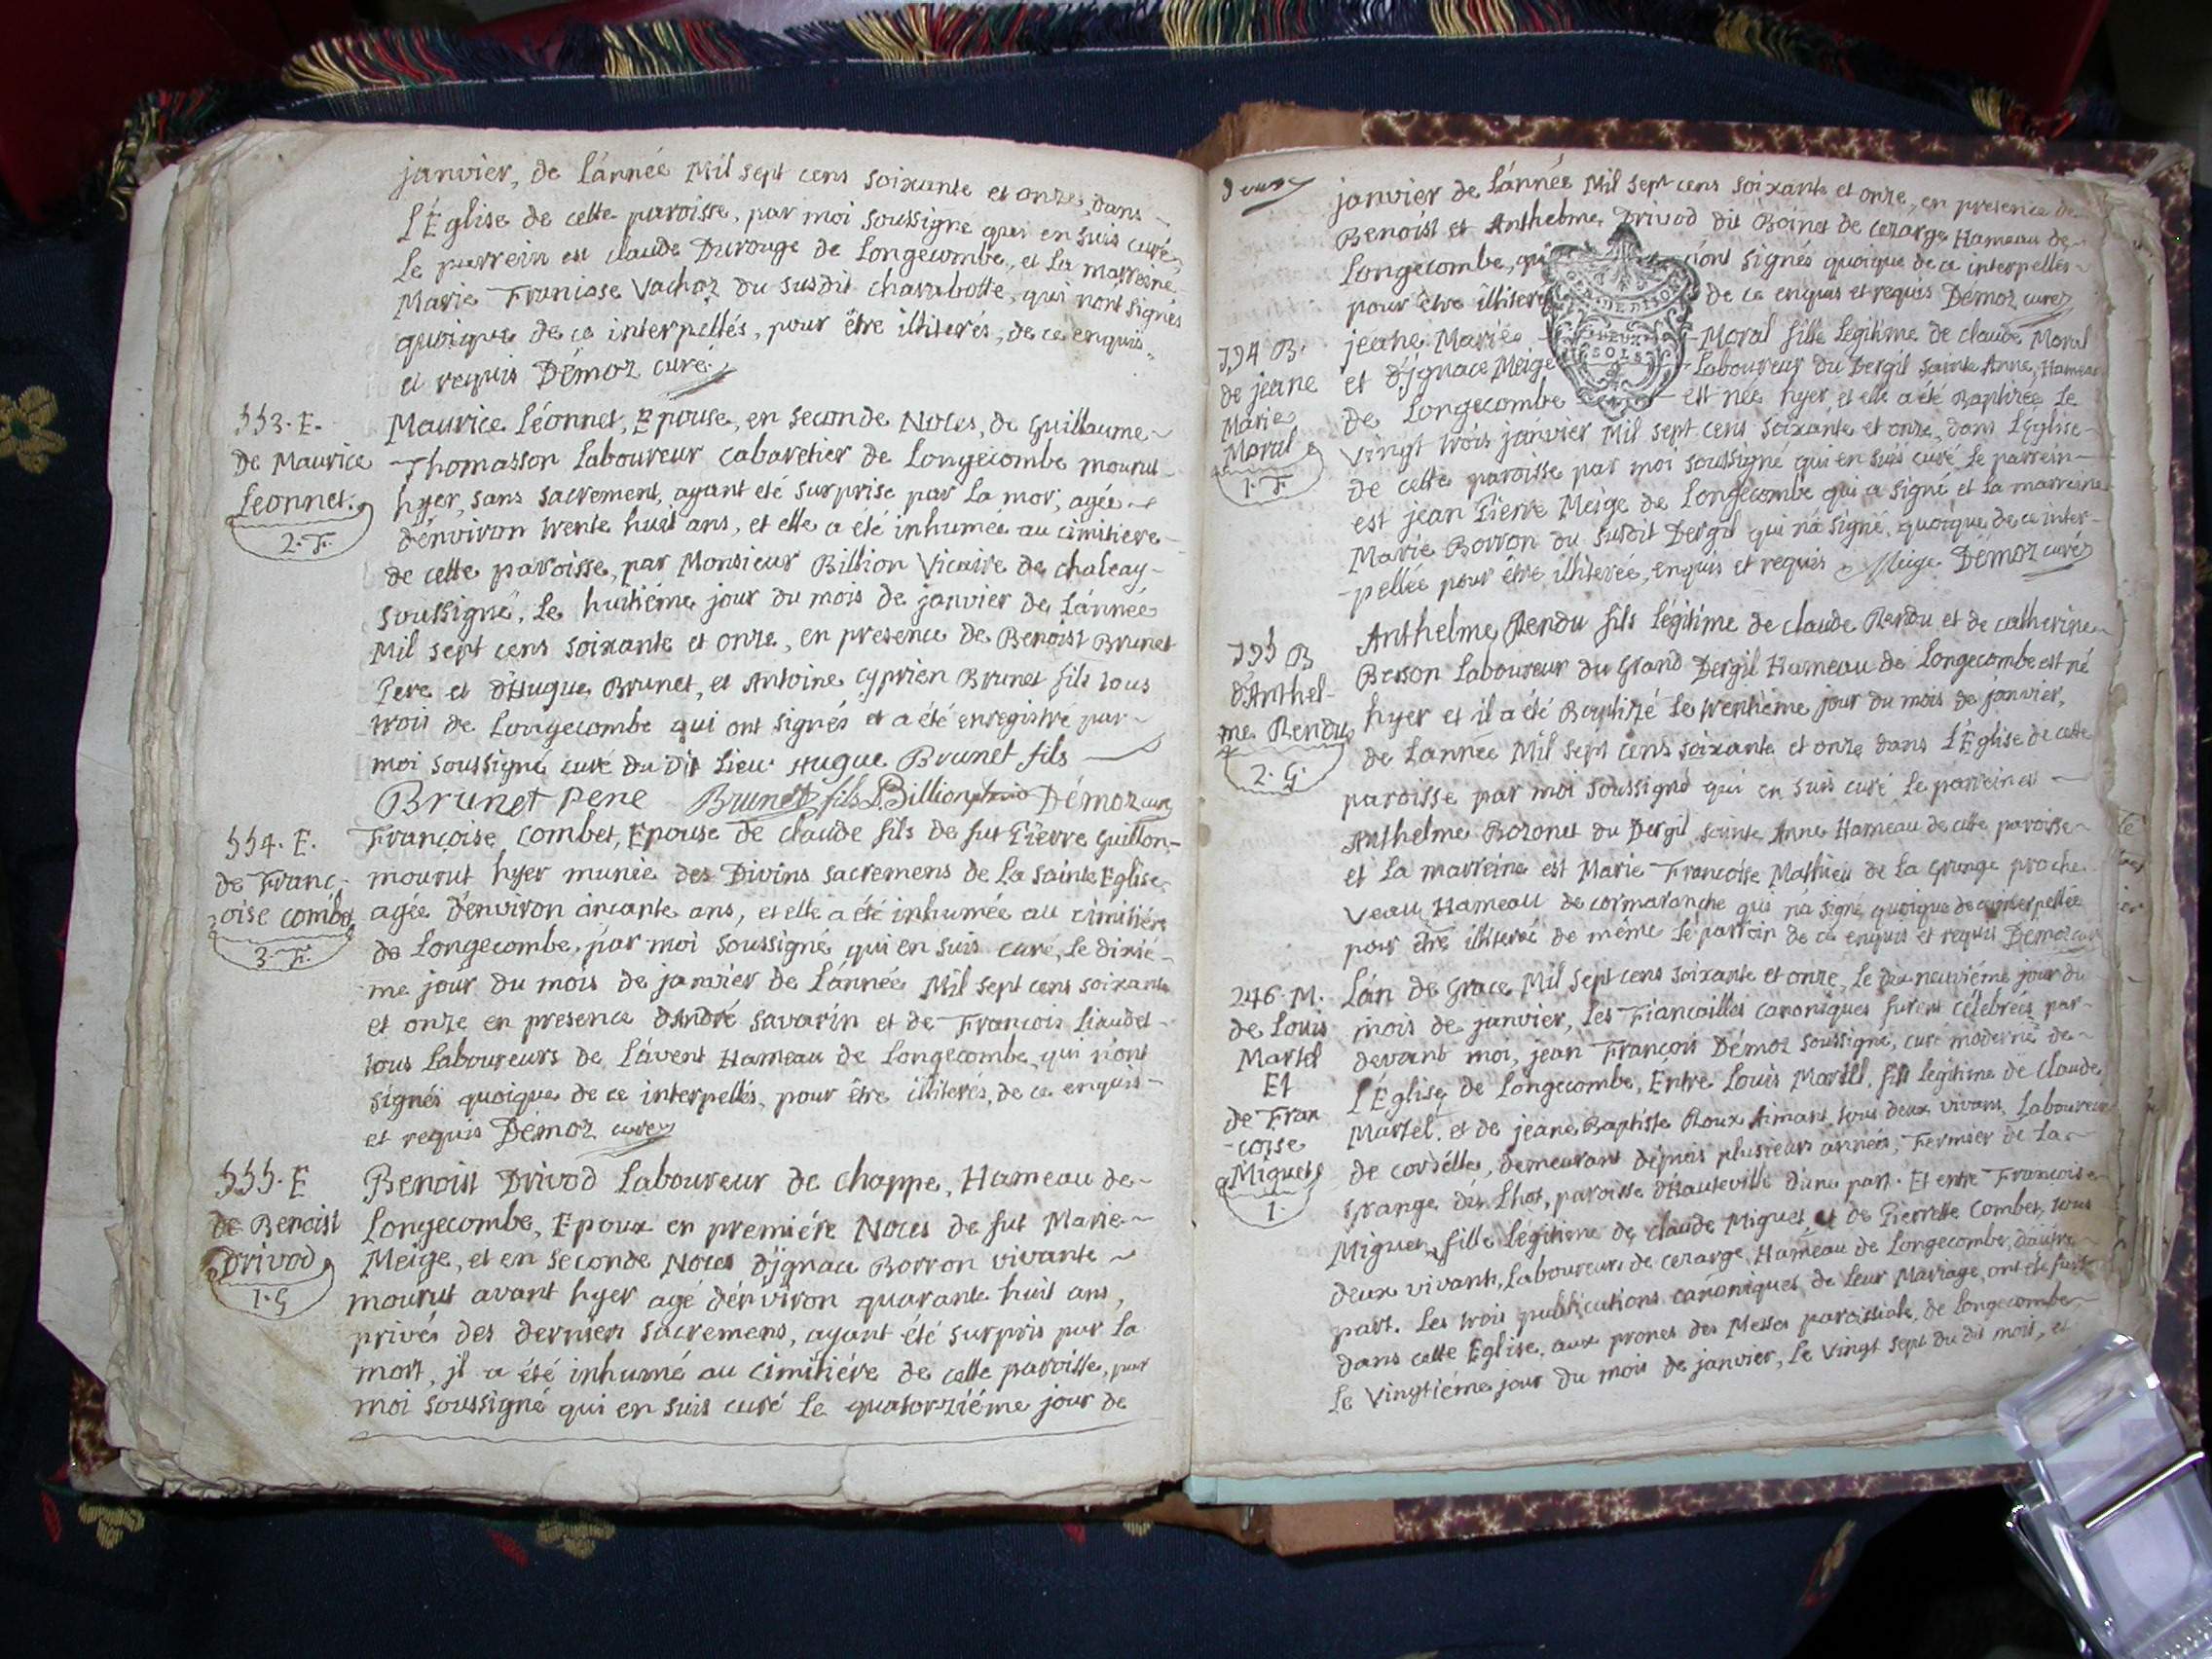 janvier, de L'année Mil sept cens soixante et onze, dans
L'Église de cette paroisse, par moi soussigné qui en suis curé,
Le parrein est claude Durouge de Longecombe, et La marreine
Marie Francoise Vachoz du susdit charabotte, qui n'ont signés
quoique de ce interpellés, pour être illiterés, de ce enquis
et requis Démoz curé
553. E.
De Maurice
Leonnet.
2. F.
Maurice Léonnet, Epouse, en seconde Noces, de Guillaume
Thomasson Laboureur cabaretier de Longecombe mourut
hyer, sans sacrement, ayant eté surprise par La mor, agée
d'environ trente huit ans, et elle a été inhumée au cimitiere
de cette paroisse, par Monsieur Billion Vicaire de chaleay
soussigné, Le huitiéme jour du mois de janvier de L'année
Mil sept cens soixante et onze, en presence de Benoist Brunet
Pere et d'Hugue Brunet, et Antoine Cyprien Brunet fils tous
trois de Longecombe qui ont signés et a été enregistré par
moi soussigné curé du Dit Lieu Hugue Brunet fils
Brunet pene Brunet fils Billion Démoz curé
554. E.
de Franc-
oise combet
3. F.
Françoise combet, Epouse de claude fils de fut Pierre Guillon
mourut hyer munie des Divins sacremens de La Sainte Eglise
agée d'environ cincante ans, et elle a été inhumée au cimitiére
de Longecombe, par moi soussigné qui en suis curé, Le dixié-
me jour du mois de janvier de L'année Mil sept cens soixante
et onze en presence d'André Savarin et de François Liaudet
tous Laboureurs de L'avent Hameau de Longecombe qui n'ont
signés quoique de ce interpellés, pour être illiterés, de ce enquis
et requis Démoz curé
555. E
de Benoist
Drivod
1. G
Benoist Drivod Laboureur de chappe, Hameau de
Longecombe, Epoux en premiére Noces de fut Marie
Meige, et en seconde Noces d'jgnace Borron vivante
mourut avant hyer agé d'environ quarante huit ans,
privé des derniers sacremens, ayant été surpris par La
mort, jl a été inhumé au cimitiére de cette paroisse, par
moi soussigné qui en suis curé Le quatorziéme jour de
Deux
janvier de L'année Mil sept cens soixante et onze, en presence de
Benoist et Anthelme Drivod dit Boinet de cezarge Hameau de
Longecombe, qui n'ont signés quoique de ce interpellés
pour être illiterés de ce enquis et requis Démoz curé
794 B.
de jeane
Marie
Moral
1. F
jeane Marie Moral fille Legitime de claude Moral
et d'jgnace Meige Laboureur du Dergit sainte Anne, Hameau
de Longecombe est née hyer, et elle a été Baptizée Le
vingt trois janvier Mil sept cens soixante et onze, dans L'Eglise
de cette paroisse par moi soussigné qui en suis curé Le parrein
est jean Pierre Meige de Longecombe qui a signé et La marreine
Marie Borron du susdit Dergit qui n'a signé, quoique de ce inter-
pellée pour être illiterée, enquis et requis Meige Démoz curé
795 B
d'Anthel-
me Rendu
2. G.
Anthelme Rendu fils Légitime de claude Rendu et de catherine
Besson Laboureur du Grand Dergit Hameau de Longecombe est né
hyer et il a été Baptizé Le trentiéme jour du mois de janvier,
de L'année Mil sept cens soixante et onze dans L'Église de cette
paroisse par moi soussigné qui en suis curé Le parrein est
Anthelme Bozonet du Dergit sainte Anne Hameau de cette paroisse
et La marreine est Marie Francoise Mathieu de La Grange proche
Veau Hameau de cormaranche qui n'a signé quoique de ce interpellée
pour être illiterée de même Le parrein de ce enquis et requis Démoz curé
246. M.
de Louis
Martel
Et
de Fran
-coise
Miguet
1.
L'an de Grace Mil sept cens soixante et onze, Le dix neuviéme jour du
mois de janvier, Les Fiancailles canoniques furent célébrées par
devant moi, jean François Démoz soussigné, curé moderne de
L'Église de Longecombe, Entre Louis Martel, fils Legitime de Claude
Martel, et de jeane Baptiste Roux Aimant, tous deux vivans, Laboureurs
de corcelles, demeurant depuis plusieurs années, Fermier de La
Grange des Lhot, paroisse d'Hauteville d'une part. Et entre Françoise
Miguet, fille Légitime de claude Miguet, et de Pierrette Combet, tous
deux vivants, Laboureurs de cezarge Hameau de Longecombe, d'autre
part. Les trois publications canoniques de Leur Mariage, ont été faites
dans cette Eglise, aux prones des Messes paroissiale, de Longecombe
Le vingtiéme jour du mois de janvier, Le vingt sept du dit mois, et